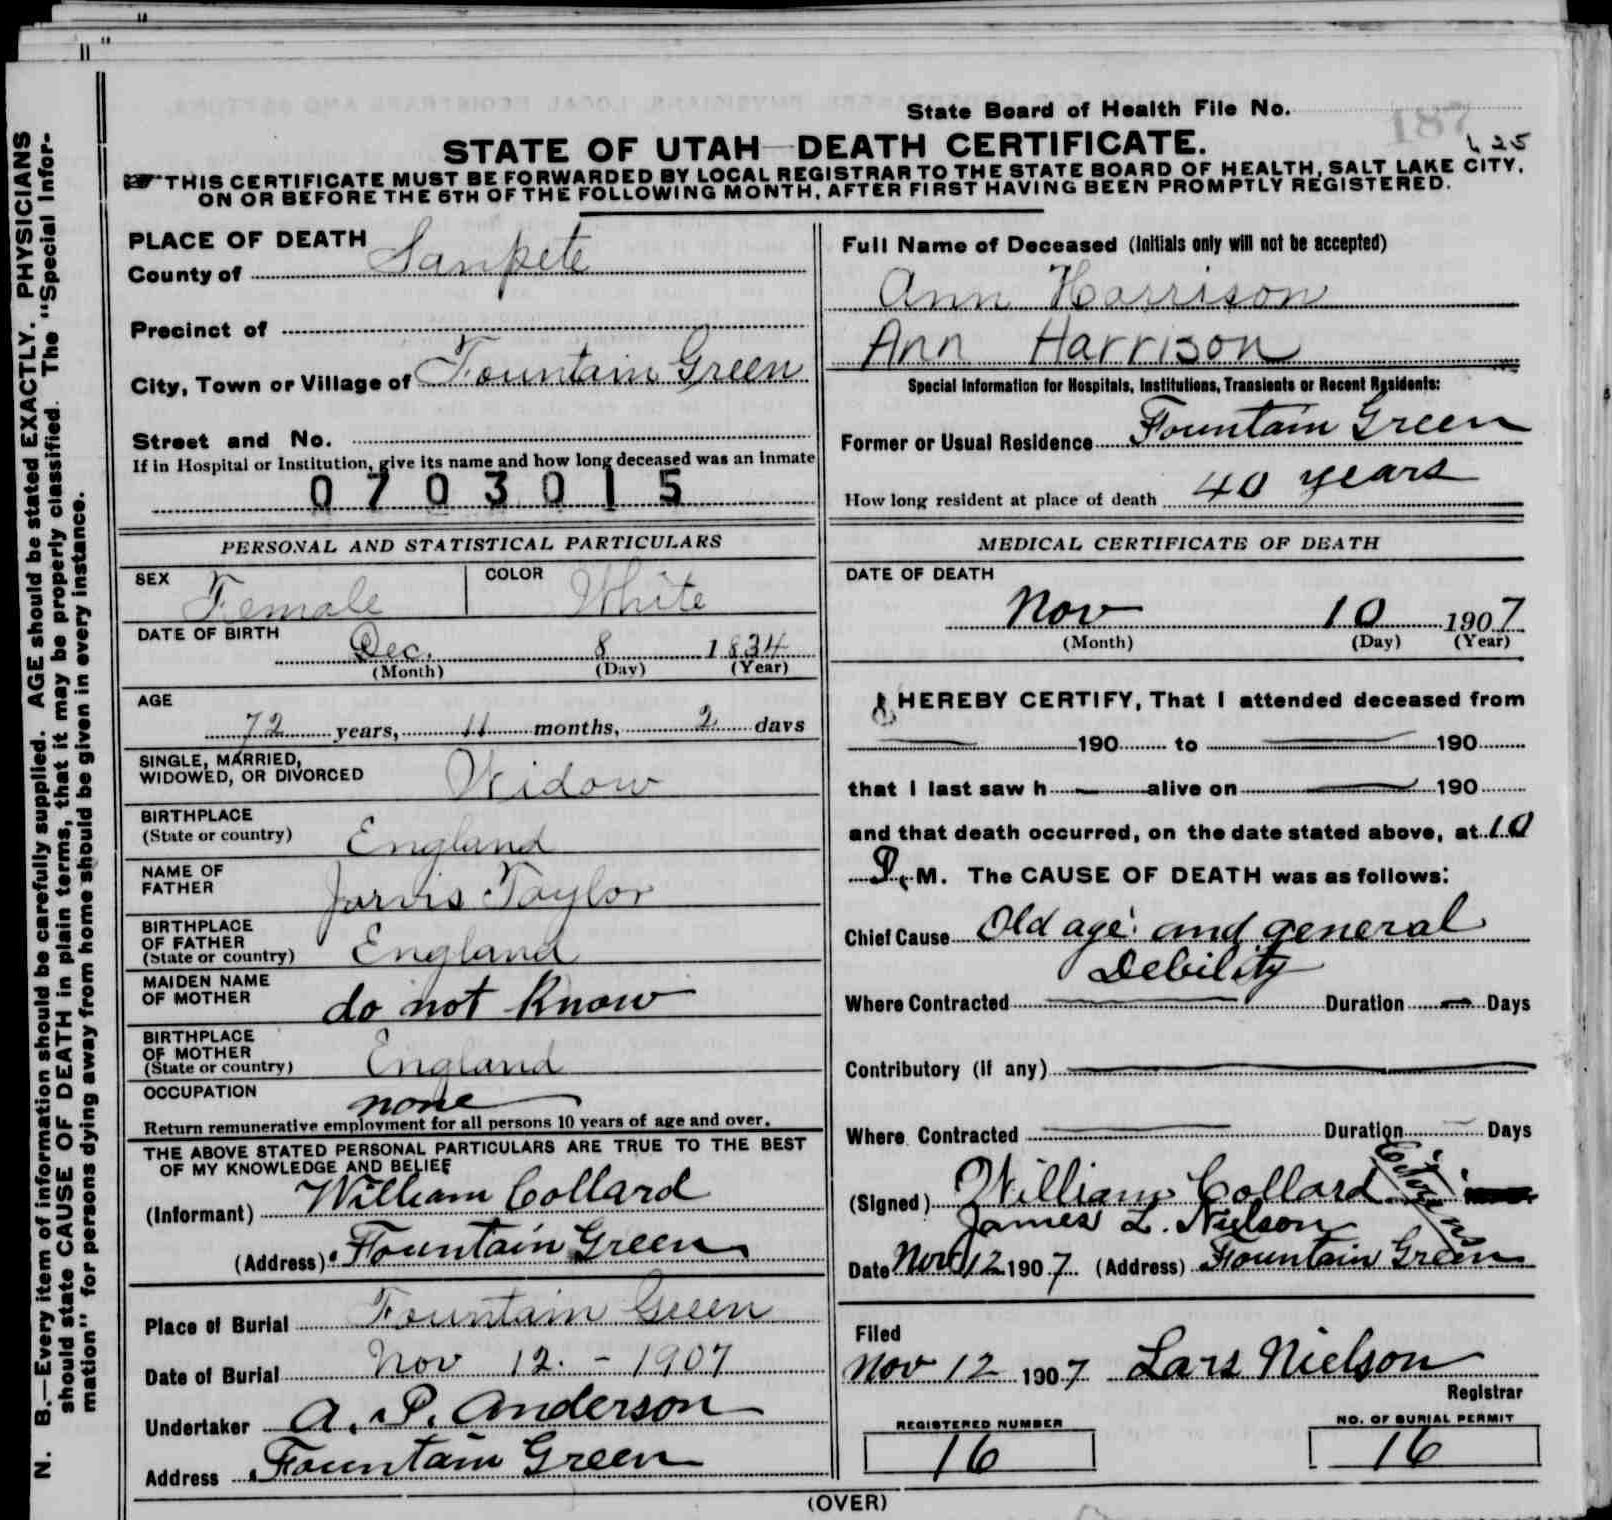 State Board of Health File No. 187
125
STATE OF UTAH—DEATH CERTIFICATE.
THIS CERTIFICATE MUST BE FORWARDED BY LOCAL REGISTRAR TO THE STATE BOARD OF HEALTH, SALT LAKE CITY,
ON OR BEFORE THE 5TH OF THE FOLLOWING MONTH, AFTER FIRST HAVING BEEN PROMPTLY REGISTERED.
N. B.—Every item of information should be carefully supplied. AGE should be stated EXACTLY. PHYSICIANS
should state CAUSE OF DEATH in plain terms, that it may be properly classified. The "Special Infor-
mation" for persons dying away from home should be given in every instance.
PLACE OF DEATH
County of Sanpete
Precinct of
City, Town or Village of Fountain Green
Street and No.
If in Hospital or Institution, give its name and how long deceased was an inmate
0703015
PERSONAL AND STATISTICAL PARTICULARS
SEX Female COLOR White
DATE OF BIRTH
Dec. 8 1834
(Month) (Day) (Year)
AGE
72 years, 11 months, 2 days
SINGLE, MARRIED,
WIDOWED, OR DIVORCED Widow
BIRTHPLACE
(State or country) England
NAME OF
FATHER Jarvis Taylor
BIRTHPLACE
OF FATHER
(State or country) England
MAIDEN NAME
OF MOTHER do not Know
BIRTHPLACE
OF MOTHER
(State or country) England
OCCUPATION none
Return remunerative employment for all persons 10 years of age and over.
THE ABOVE STATED PERSONAL PARTICULARS ARE TRUE TO THE BEST
OF MY KNOWLEDGE AND BELIEF
(Informant) William Collard
(Address) Fountain Green
Place of Burial Fountain Green
Date of Burial Nov 12. - 1907
Undertaker A. P. Anderson
Address Fountain Green
Full Name of Deceased (Initials only will not be accepted)
Ann Harrison
Ann Harrison
Special Information for Hospitals, Institutions, Transients or Recent Residents:
Former or Usual Residence Fountain Green
How long resident at place of death 40 years
MEDICAL CERTIFICATE OF DEATH
DATE OF DEATH
Nov 10 1907
(Month) (Day) (Year)
I HEREBY CERTIFY, That I attended deceased from
190 to 190
that I last saw h alive on 190
and that death occurred, on the date stated above, at 10
P. M. The CAUSE OF DEATH was as follows:
Chief Cause Old age and general
Debility
Where Contracted Duration Days
Contributory (if any)
Where Contracted Duration Days
(Signed) William Collard Citizens
James L. Nielson
Date Nov 12 1907 (Address) Fountain Green
Filed
Nov 12 1907 Lars Nielson
Registrar
REGISTERED NUMBER
16
NO. OF BURIAL PERMIT
16
(OVER)